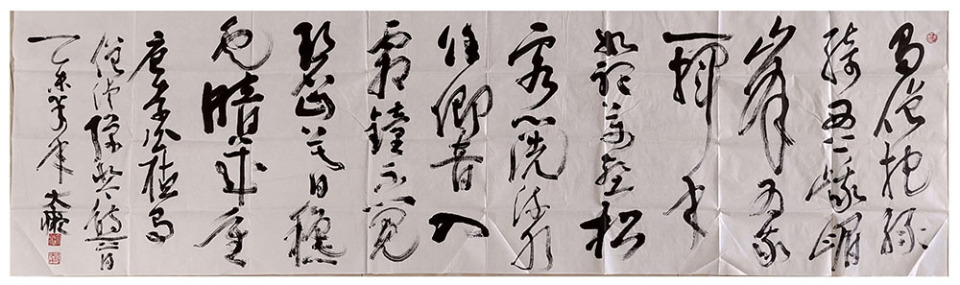 蜀僧抱綠
綺西下峨眉
峰為我
一揮手
如聽萬壑松
客心洗流水
餘響入
霜鐘不覺
碧山暮秋
雲暗幾重
唐李白聽蜀
僧濬彈琴詩一首
乙未